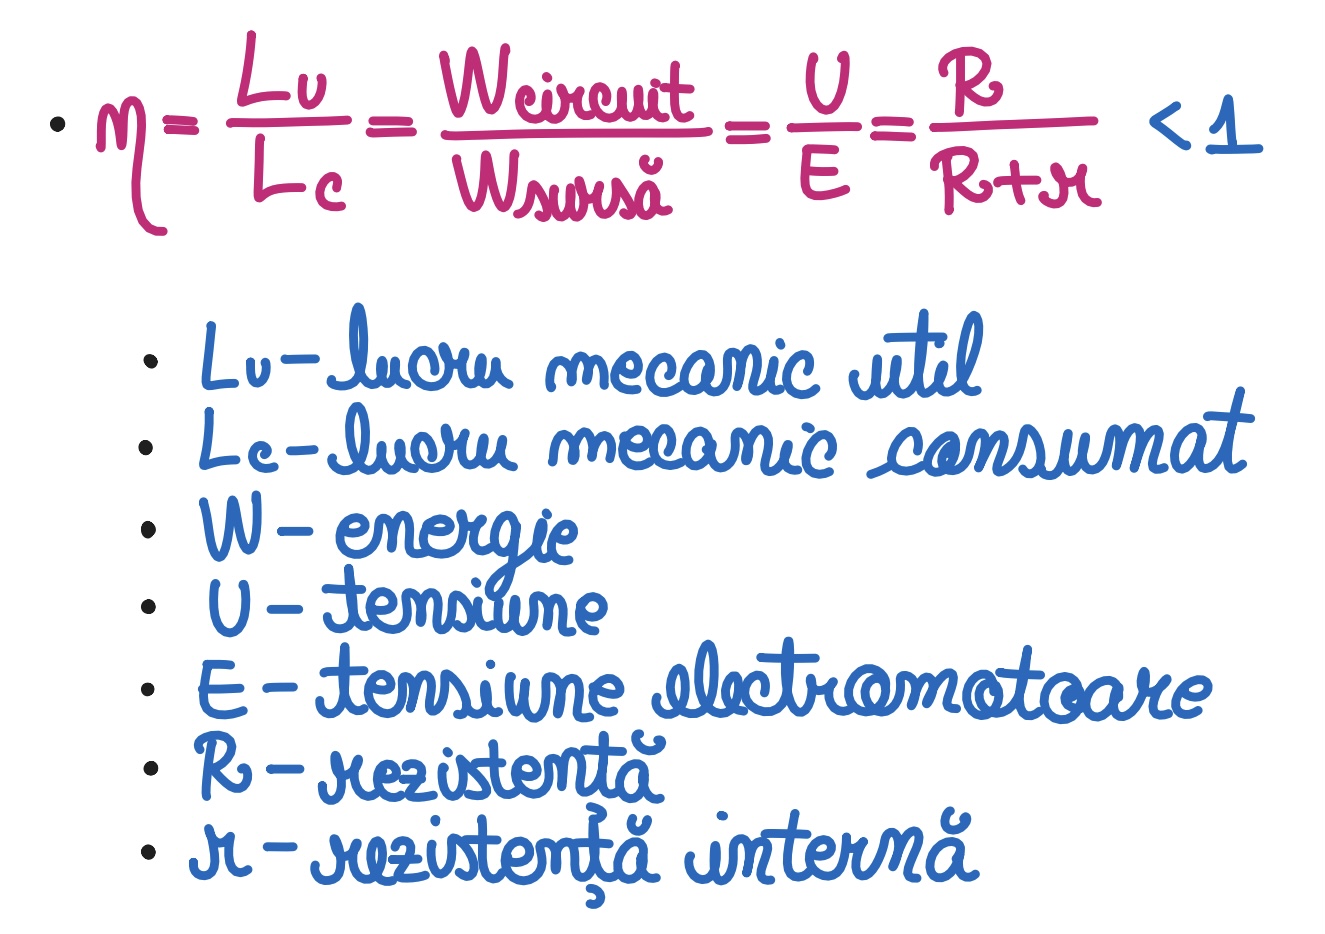 • η = Lu/Lc = Wcircuit/Wsursă = U/E = R/(R+r) < 1
• Lu – lucru mecanic util
• Lc – lucru mecanic consumat
• W – energie
• U – tensiune
• E – tensiune electromotoare
• R – rezistență
• r – rezistență internă